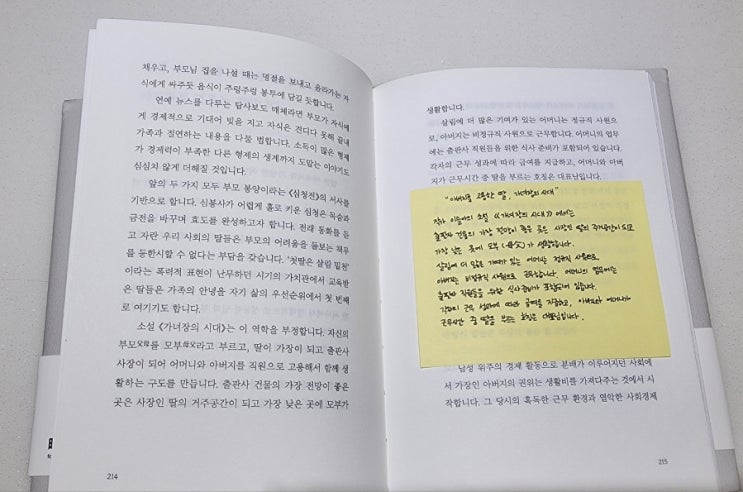 채우고, 부모님 집을 나설 때는 명절을 보내고 올라가는 자
식에게 싸주듯 음식이 주렁주렁 봉투에 담길 듯합니다.
연예 뉴스를 다루는 탐사보도 매체라면 부모가 자식에
게 경제적으로 기대어 빚을 지고 자식은 견디다 못해 끝내
가족과 절연하는 내용을 다룰 법합니다. 소득이 많은 형제
가 경제력이 부족한 다른 형제의 생계까지 돕는 이야기도
심심치 않게 더해질 것입니다.
앞의 두 가지 모두 부모 봉양이라는 《심청전》의 서사를
기반으로 합니다. 심봉사가 어렵게 홀로 키운 심청은 목숨과
금전을 바꾸며 효도를 완성하고자 합니다. 전래 동화를 듣
고 자란 우리 사회의 딸들은 부모의 어려움을 돌보는 책무
를 등한시할 수 없다는 부담을 갖습니다. '첫딸은 살림 밑천'
이라는 폭력적 표현이 난무하던 시기의 가치관에서 교육받
은 딸들은 가족의 안녕을 자기 삶의 우선순위에서 첫 번째
로 여기기도 합니다.
소설 《가녀장의 시대》는 이 역학을 부정합니다. 자신의
부모父母를 모부母父라고 부르고, 딸이 가장이 되고 출판사
사장이 되어 어머니와 아버지를 직원으로 고용해서 함께 생
활하는 구도를 만듭니다. 출판사 건물의 가장 전망이 좋은
곳은 사장인 딸의 거주공간이 되고 가장 낮은 곳에 모부가
214
생활합니다.
살림에 더 많은 기여가 있는 어머니는 정규직 사원으
로, 아버지는 비정규직 사원으로 근무합니다. 어머니의 업무
에는 출판사 직원들을 위한 식사 준비가 포함되어 있습니다.
각자의 근무 성과에 따라 급여를 지급하고, 어머니와 아버
지가 근무시간 중 딸을 부르는 호칭은 대표님입니다.
"아버지를 고용한 딸, 가녀장의 시대"
작가 이슬아의 소설 《가녀장의 시대》에서는
출판사 건물의 가장 전망이 좋은 곳은 사장인 딸의 거주공간이 되고
가장 낮은 곳에 모부(母父)가 생활합니다.
살림에 더 많은 기여가 있는 어머니는 정규직 사원으로,
아버지는 비정규직 사원으로 근무합니다. 어머니의 업무에는
출판사 직원들을 위한 식사 준비가 포함되어 있습니다.
각자의 근무 성과에 따라 급여를 지급하고, 아버지와 어머니가
근무시간 중 딸을 부르는 호칭은 대표님입니다.
남성 위주의 경제 활동으로 분배가 이루어지던 사회에
서 가장인 아버지의 권위는 생활비를 가져다주는 것에서 시
작합니다. 그 당시의 혹독한 근무 환경과 열악한 사회경제
215